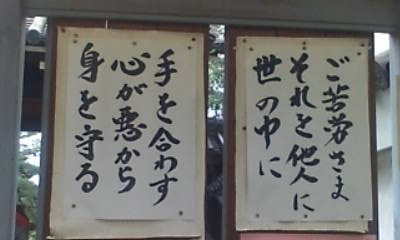 ご苦労さま
それを他人に
世の中に
手を合わす
心が悪から
身を守る